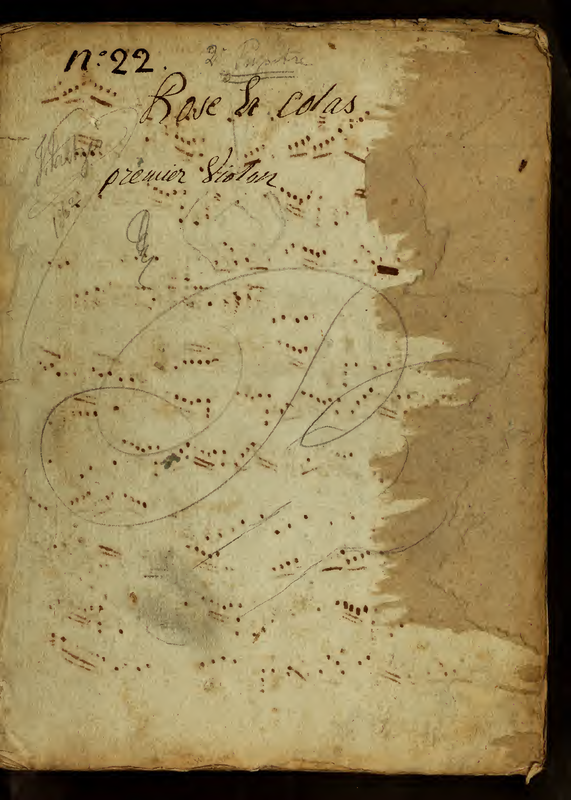 n:o 22.
2e Pupitre
Rose Et colas
premier Violon